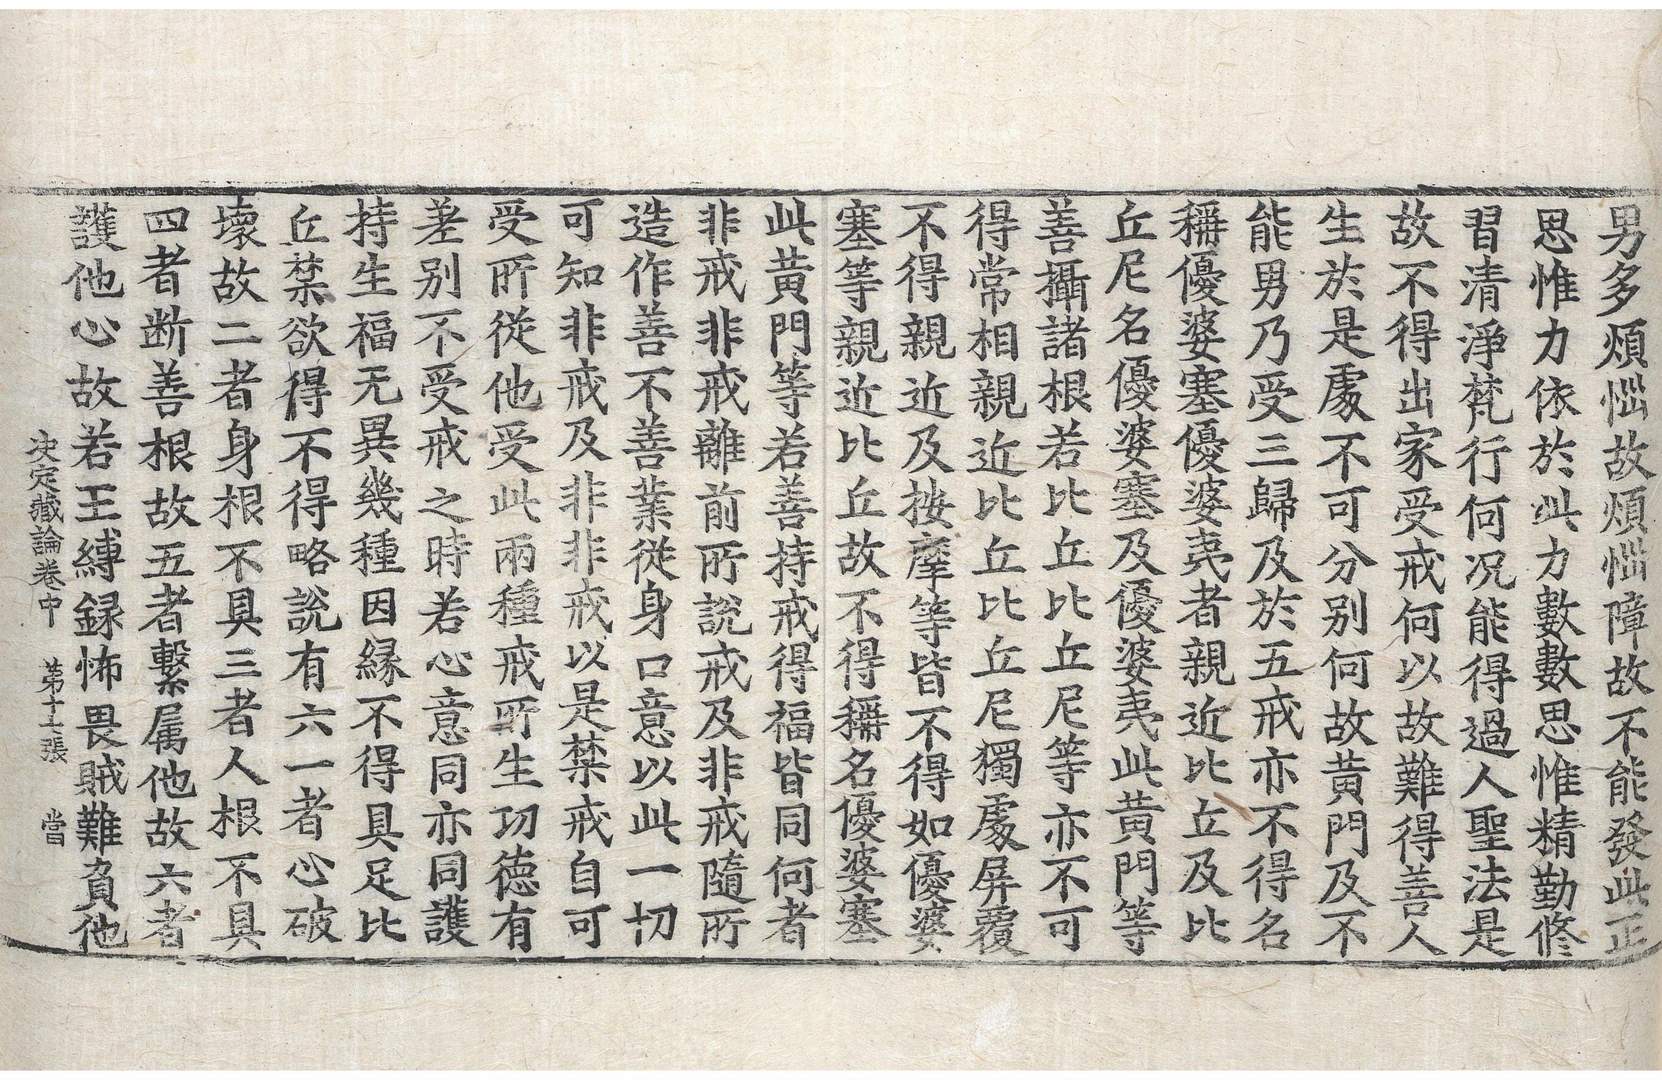 男多煩惱故煩惱障故不能發此正
思惟力依於此力數數思惟精勤修
習清淨梵行何況能得過人聖法是
故不得出家受戒何以故難得善人
生於是處不可分別何故黃門及不
能男乃受三歸及於五戒亦不得名
稱優婆塞優婆夷者親近比丘及比
丘尼名優婆塞及優婆夷此黃門等
善攝諸根若比丘比丘尼等亦不可
得常相親近比丘比丘尼獨處屏覆
不得親近及按摩等皆不得如優婆
塞等親近比丘故不得稱名優婆塞
此黃門等若善持戒得福皆同何者
非戒非戒離前所說戒及非戒隨所
造作善不善業從身口意以此一切
可知非戒及非非戒以是禁戒自可
受所從他受此兩種戒所生功德有
差别不受戒之時若心意同亦同護
持生福无異幾種因緣不得具足比
丘禁欲得不得略說有六一者心破
壞故二者身根不具三者人根不具
四者断善根故五者繫属他故六者
護他心故若王縛録怖畏賊難負他
决定藏論卷中 第十七張 當